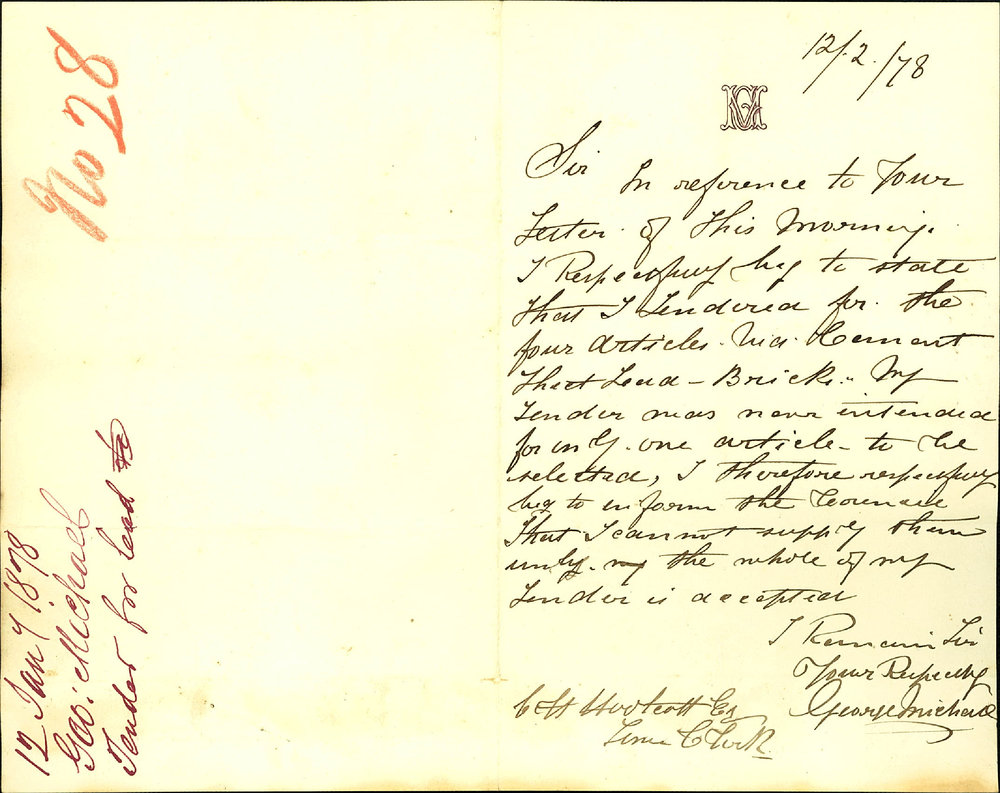 No 28
12 Jany 1878
Geo: Michael
Tender for lead &c
12/.2./78
Sir
In reference to Your
Letter. of this Morning.
I Respectfuly beg to state
that I Tendered for. the
four Articles. Viz. Cement
Sheet Lead - Bricks.. My
Tender was never intended
for only. one article - to be
selected, I therefore respectfuly
beg to inform the
That I cannot supply them
unly. the whole of my
Tender is accepted
I Remain Sir
Your Respectfy
George Michael
C H Woolcott Esq
Town Clerk.